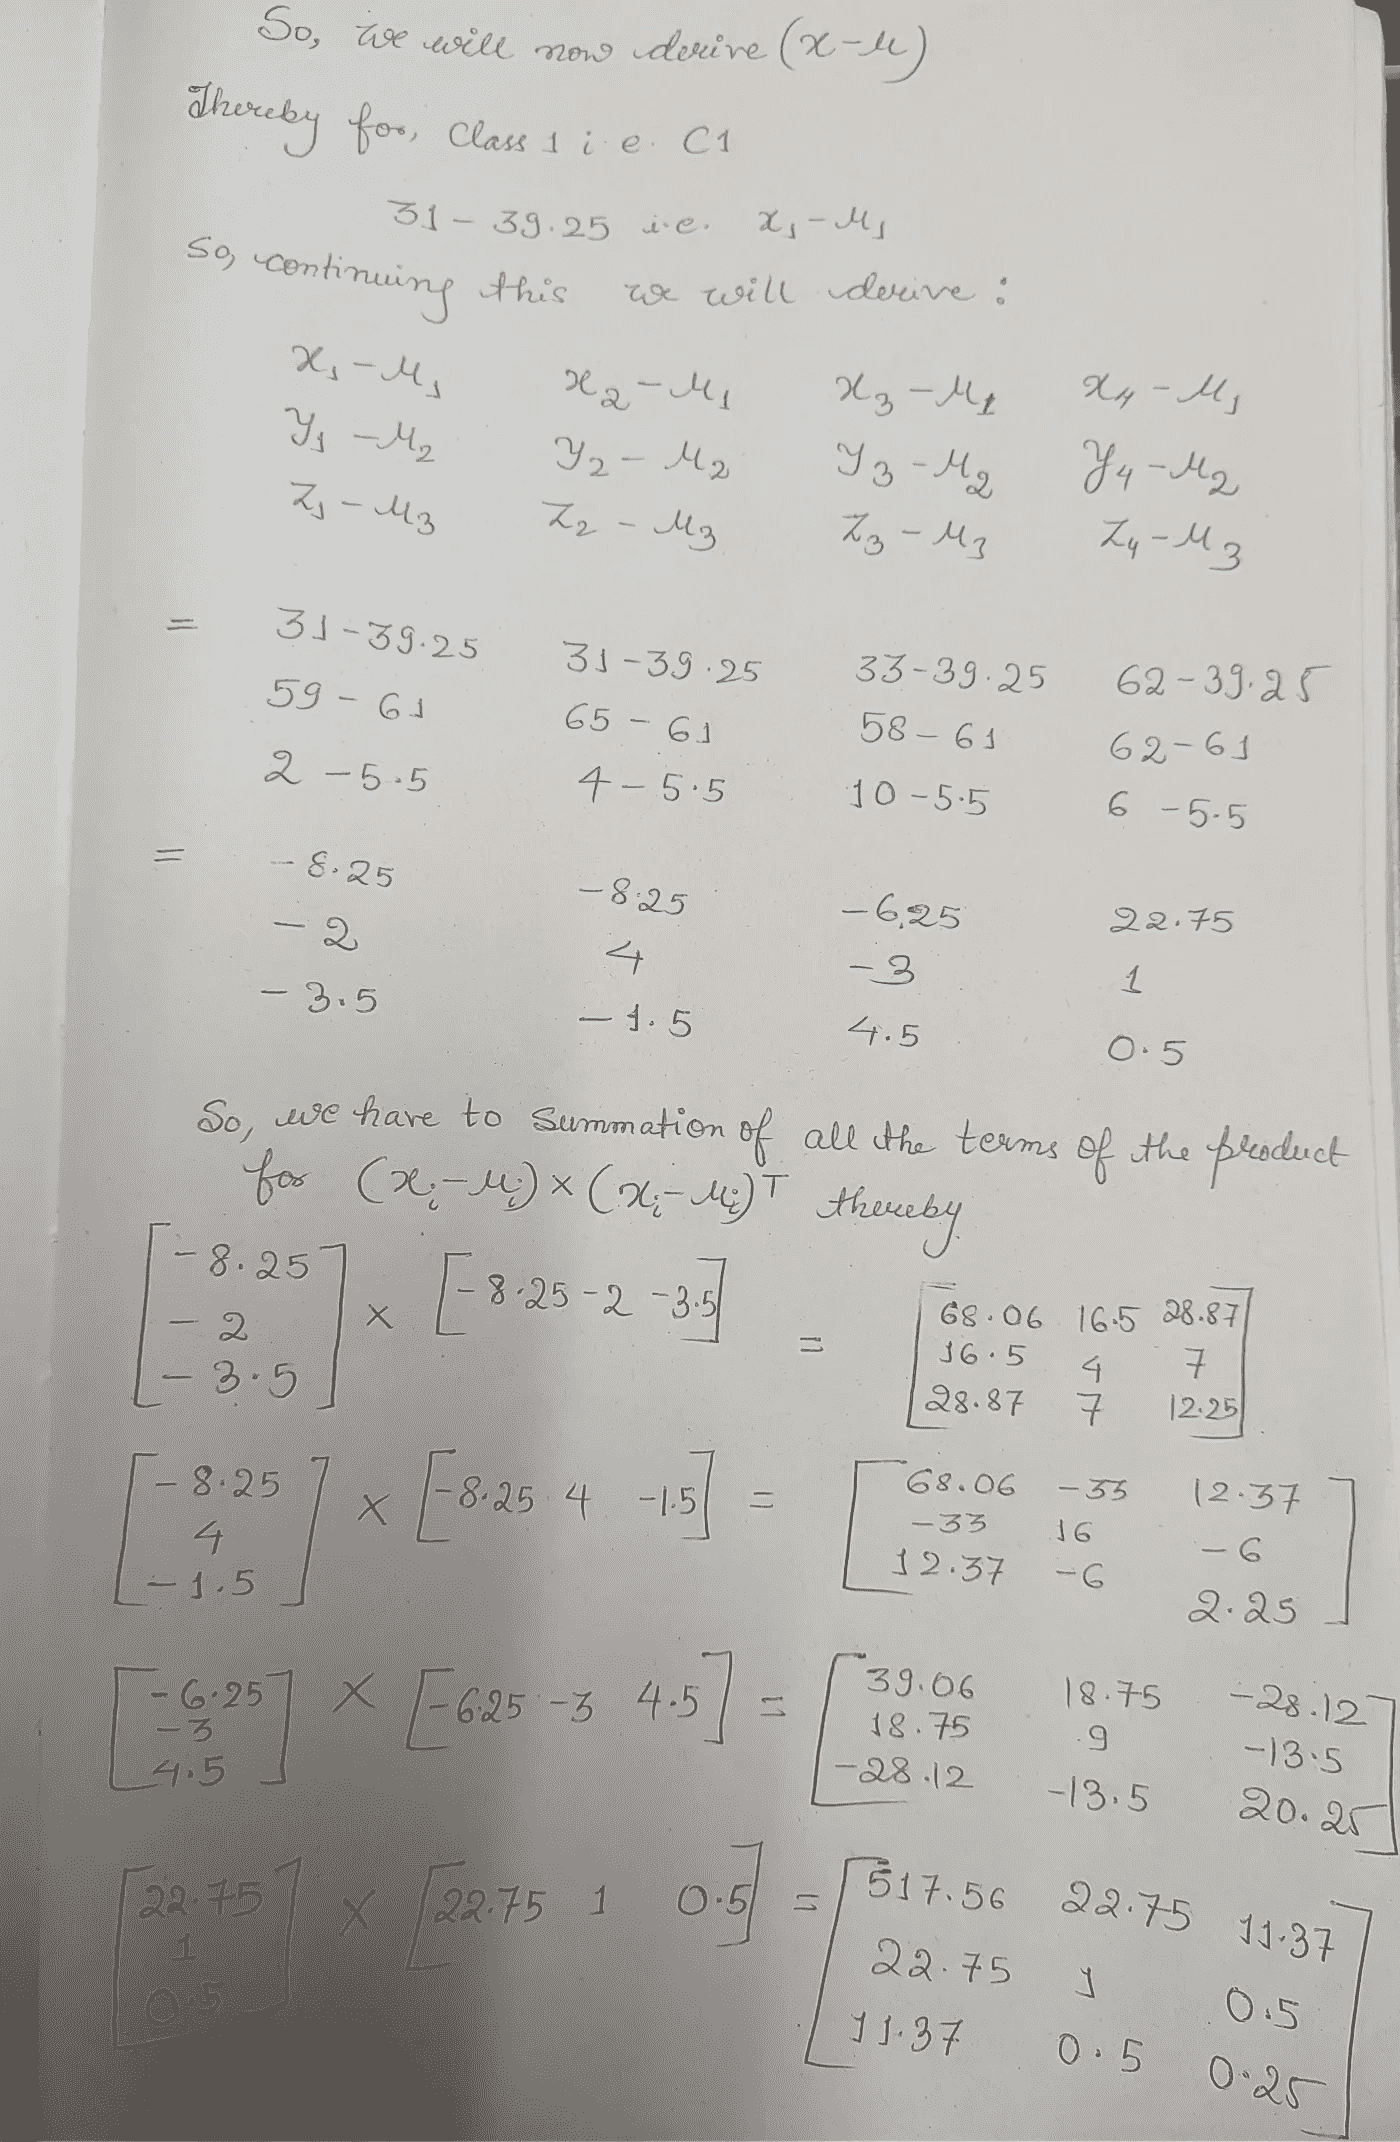 So, we will now derive (x-μ)
Thereby for, Class 1 i.e. C1
31 - 39.25 i.e. x₁-μ₁
So, continuing this we will derive :
x₁-μ₁ x₂-μ₁ x₃-μ₁ x₄-μ₁
y₁-μ₂ y₂-μ₂ y₃-μ₂ y₄-μ₂
z₁-μ₃ z₂-μ₃ z₃-μ₃ z₄-μ₃
= 31-39.25 31-39.25 33-39.25 62-39.25
59-61 65-61 58-61 62-61
2-5.5 4-5.5 10-5.5 6-5.5
= -8.25 -8.25 -6.25 22.75
-2 4 -3 1
-3.5 -1.5 4.5 0.5
So, we have to summation of all the terms of the product
for (xᵢ-μᵢ) × (xᵢ-μᵢ)ᵀ thereby
[-8.25 × [-8.25 -2 -3.5] = [68.06 16.5 28.87
-2 16.5 4 7
-3.5] 28.87 7 12.25]
[-8.25 × [-8.25 4 -1.5] = [68.06 -33 12.37
4 -33 16 -6
-1.5] 12.37 -6 2.25]
[-6.25 × [-6.25 -3 4.5] = [39.06 18.75 -28.12
-3 18.75 9 -13.5
4.5] -28.12 -13.5 20.25]
[22.75 × [22.75 1 0.5] = [517.56 22.75 11.37
1 22.75 1 0.5
0.5] 11.37 0.5 0.25]